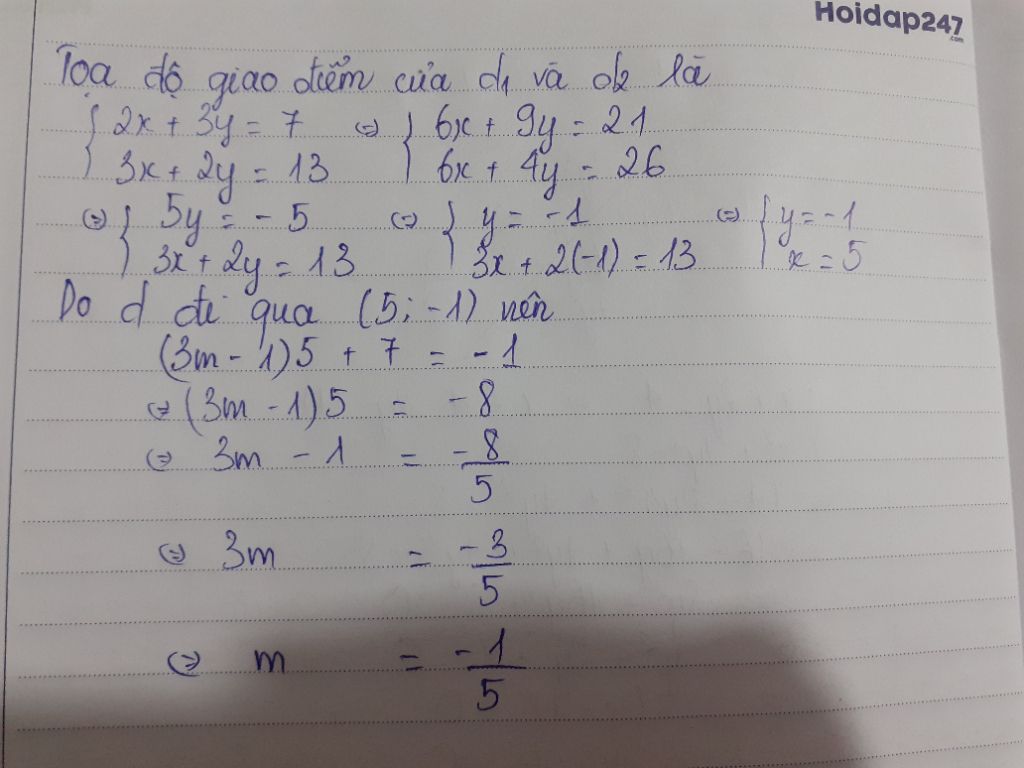 Hoidap247
.com
Tọa độ giao điểm của d1 và d2 là
{ 2x + 3y = 7 ⇔ { 6x + 9y = 21
3x + 2y = 13 6x + 4y = 26
⇔ { 5y = -5 ⇔ { y = -1 ⇔ { y = -1
3x + 2y = 13 3x + 2(-1) = 13 x = 5
Do d đi qua (5; -1) nên
(3m - 1)5 + 7 = -1
⇔ (3m - 1)5 = -8
⇔ 3m - 1 = -8/5
⇔ 3m = -3/5
⇔ m = -1/5